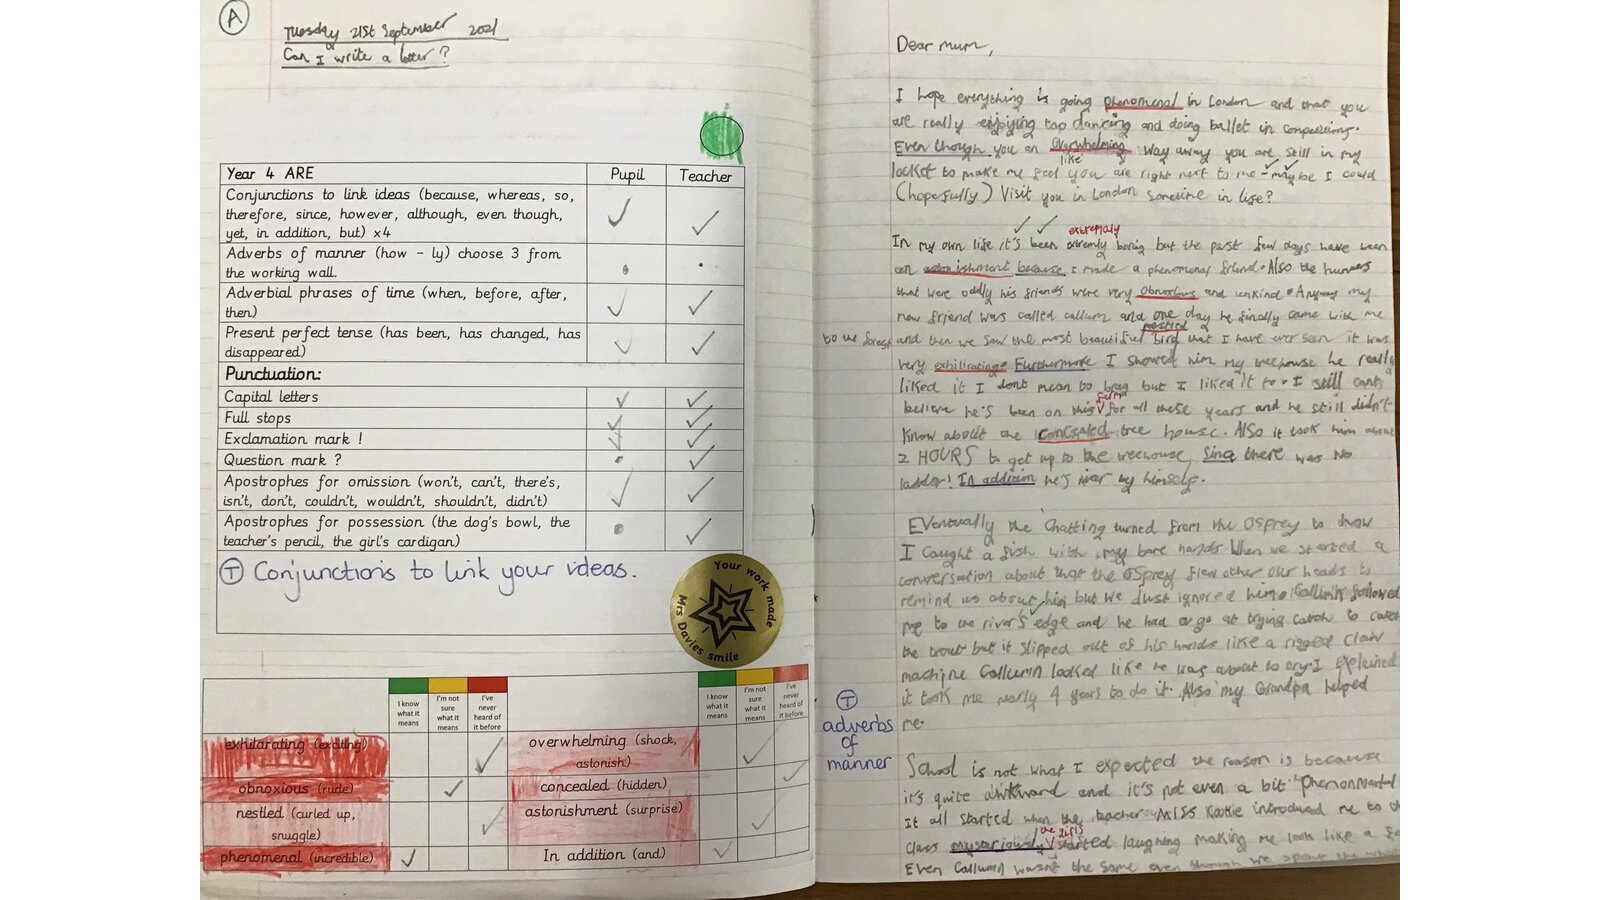 A
Tuesday 21st September 2021
Can I write a letter?
Year 4 ARE Pupil Teacher
Conjunctions to link ideas (because, whereas, so,
therefore, since, however, although, even though,
yet, in addition, but) x4
Adverbs of manner (how - ly) choose 3 from
the working wall.
Adverbial phrases of time (when, before, after,
then)
Present perfect tense (has been, has changed, has
disappeared)
Punctuation:
Capital letters
Full stops
Exclamation mark !
Question mark ?
Apostrophes for omission (won't, can't, there's,
isn't, don't, couldn't, wouldn't, shouldn't, didn't)
Apostrophes for possession (the dog's bowl, the
teacher's pencil, the girl's cardigan)
T Conjunctions to link your ideas.
Your work made
Mrs Davies smile
I know what it means
I'm not sure what it means
I've never heard of it before
I know what it means
I'm not sure what it means
I've never heard of it before
exhilarating (exciting)
overwhelming (shock, astonish)
obnoxious (rude)
concealed (hidden)
nestled (curled up, snuggle)
astonishment (surprise)
phenomenal (incredible)
In addition (and)
Dear mum,
I hope everything is going phenomenal in London and that you
are really enjoying tap dancing and doing ballet in
Even though you an overwhelming way away you are still in my
like
locket to make me feel you are right next to me - maybe I could
(hopefully) Visit you in London sometime in life?
extremely
In my own life it's been boring but the past few days have been
an astonishment because I made a phenomenal friend. Also the
that were oddly his friends were very obnoxious and unkind. Anyway my
new friend was called callum and one day he finally came with me
nestled
to the forest and then we saw the most beautiful bird that I have ever seen it was
very Furthermore I showed him my treehouse he really
liked it I dont mean to brag but I liked it to. I still cants
believe he's been on this for all these years and he still didn't
know about the concealed tree house. Also it took him about
2 HOURS to get up to the treehouse Since there was No
ladder! In addition he's by himself.
Eventually the chatting turned from the osprey to how
I caught a fish with my bare hands. When we started a
conversation about that the osprey flew other our heads to
remind us about him but we dust ignored him. followed
me to the river's edge and he had a go at trying catch to catch
the trout but it slipped out of his hands like a rigged claw
machine Callumn looked like he was about to cry. I explained
it took me nearly 4 years to do it. Also my Grandpa helped
me.
T
adverbs
of
manner
School is not what I expected the reason is because
it's quite awkward and it's not even a bit
It all started when the teacher Miss introduced me to
the girls
class mysteriously started laughing making me look like a
Even Callumn wasn't the same even though we spent the